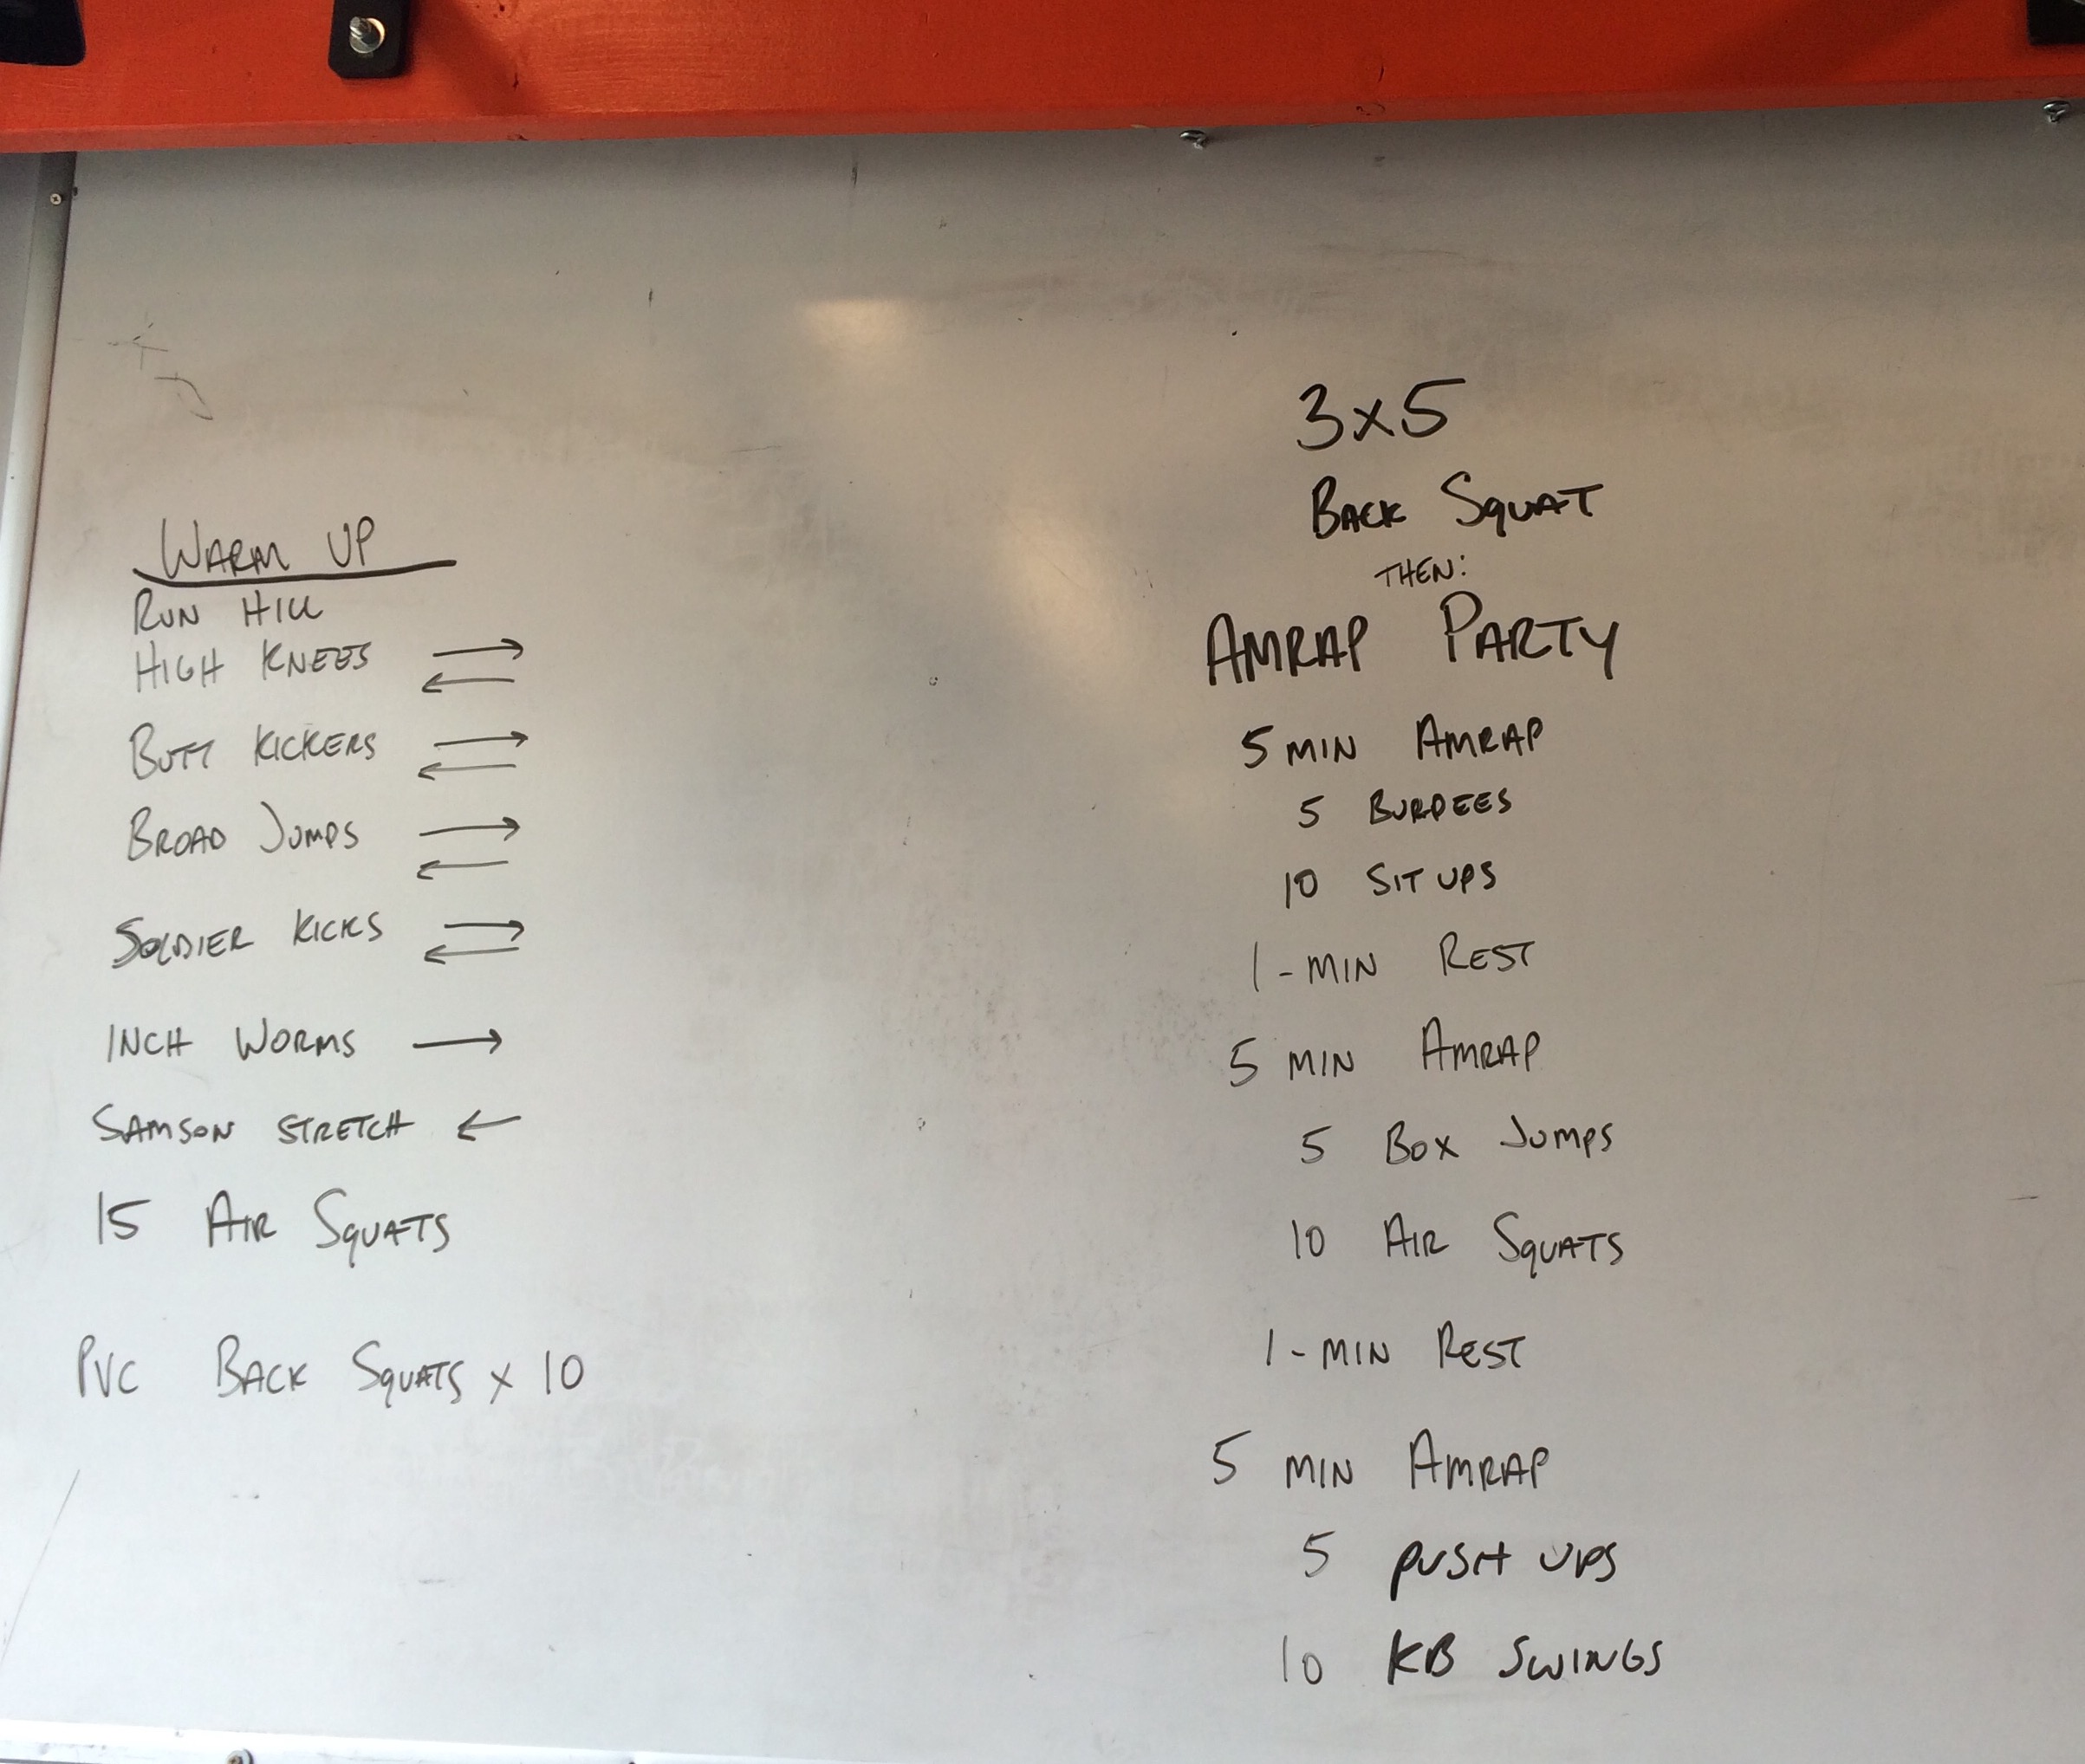 WARM UP
RUN HILL
HIGH KNEES → ←
BUTT KICKERS → ←
BROAD JUMPS → ←
SOLDIER KICKS → ←
INCH WORMS →
SAMSON STRETCH ←
15 AIR SQUATS
PVC BACK SQUATS x 10
3x5
BACK SQUAT
THEN:
AMRAP PARTY
5 MIN AMRAP
5 BURPEES
10 SIT UPS
1-MIN REST
5 MIN AMRAP
5 BOX JUMPS
10 AIR SQUATS
1-MIN REST
5 MIN AMRAP
5 PUSH UPS
10 KB SWINGS